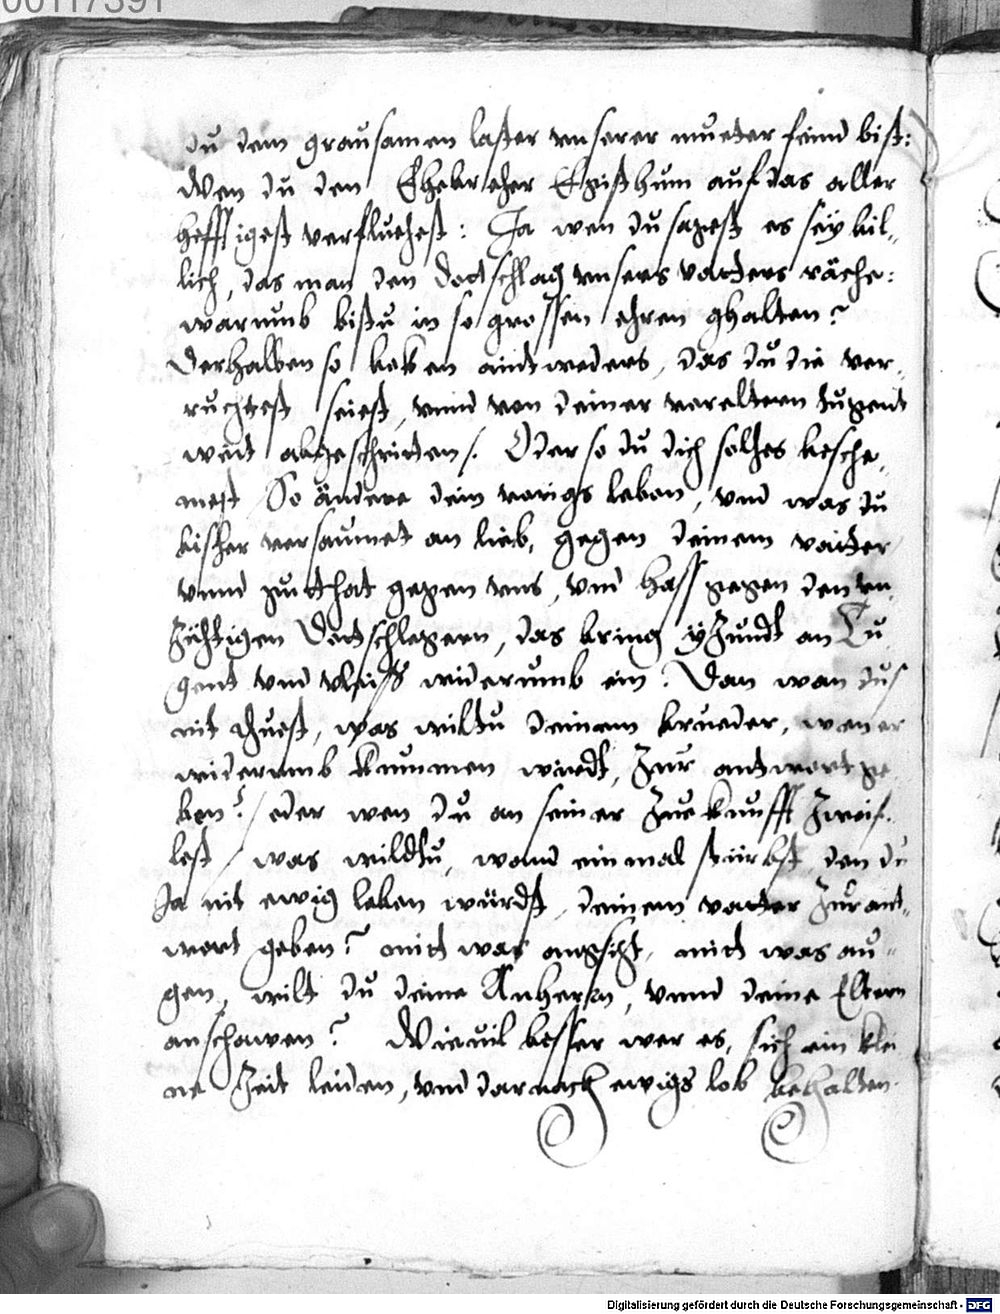 00117391
du dem grausamen laster unserer mueter feind bist:
Wen du den Ehebrecher Egisthum auf das aller
hefftigest verfluchest: Ja wen du sagest es sey bil-
lich, das man den dodtschlag unsers vatters räche:
warumb bistu in so grossen ehren ghalten?
Derhalben so beken aintweders, das du die ver-
ruchtest seiest, unnd von deiner voreltern tugent
weit abgeschritten/. Oder so du dich solhes besche-
mest So ändere dein vorigs leben, und was du
bisher versaumet an lieb, gegen deinem vatter
unnd gutthat gegen uns, und hass gegen den un-
züchtigen Dodtschlegern, das bring yzundt an Tu
gent und vleiss widerumb ein. Dan wan dus
nit thuest, was wiltu deinem brueder, wan er
widerumb kummen wirdt, zur antwort ge
ben? oder wen du an seiner zuekunfft zweif-
lest, was wildtu, wand einmal stürbst, den du
Ja nit ewig leben würdst, deinem vatter zur ant-
wort geben? mit was angsicht, mit was au-
gen, wilt du deine Anherrn, unnd deine Eltern
anschawen? Wievil besser wer es, sich ein klei
ne Zeit leiden, und darnach ewigs lob behalten.
Digitalisierung gefördert durch die Deutsche Forschungsgemeinschaft - DFG